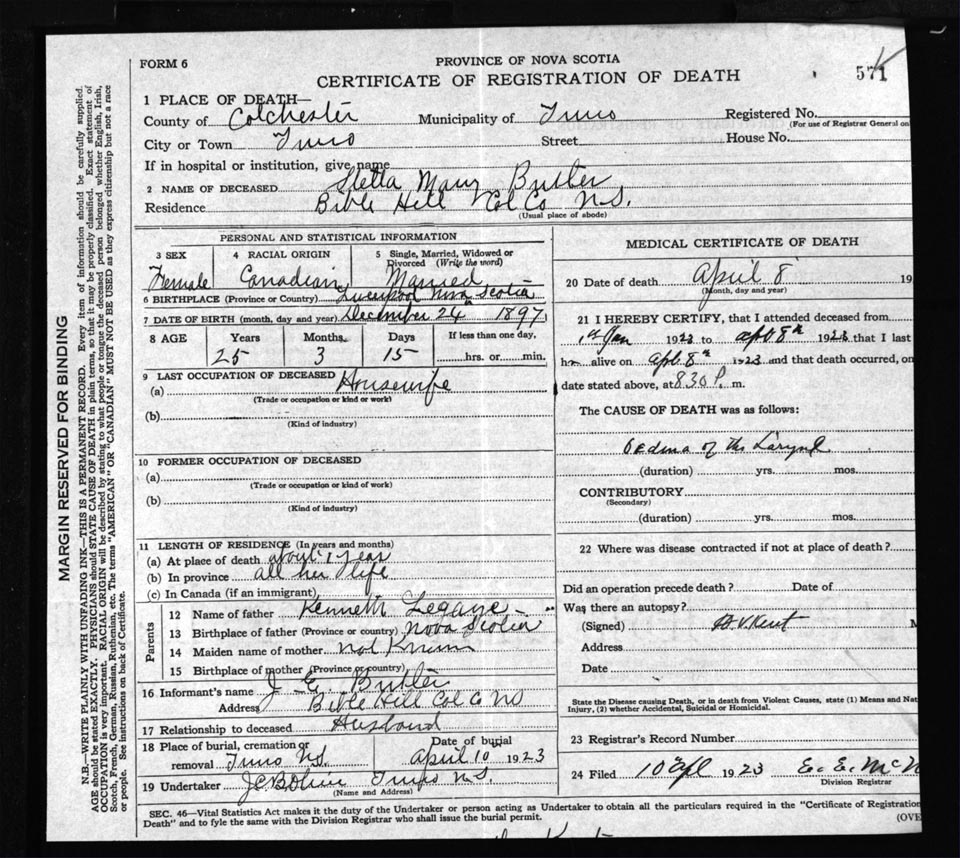 FORM 6
PROVINCE OF NOVA SCOTIA
CERTIFICATE OF REGISTRATION OF DEATH
571
1 PLACE OF DEATH—
County of Colchester Municipality of Truro Registered No.
(For use of Registrar General on
City or Town Truro Street House No.
If in hospital or institution, give name
2 NAME OF DECEASED Stella Mary Butler
Residence Bible Hill Col Co N.S.
(Usual place of abode)
PERSONAL AND STATISTICAL INFORMATION
3 SEX 4 RACIAL ORIGIN 5 Single, Married, Widowed or Divorced (Write the word)
Female Canadian Married
6 BIRTHPLACE (Province or Country) Liverpool Nova Scotia
7 DATE OF BIRTH (month, day and year) December 24th 1897
8 AGE Years Months Days If less than one day,
25 3 15 hrs. or min.
9 LAST OCCUPATION OF DECEASED
(a) Housewife
(Trade or occupation or kind or work)
(b)
(Kind of industry)
10 FORMER OCCUPATION OF DECEASED
(a)
(Trade or occupation or kind of work)
(b)
(Kind of industry)
11 LENGTH OF RESIDENCE (In years and months)
(a) At place of death about 1 year
(b) In province all her life
(c) In Canada (if an immigrant)
Parents
12 Name of father Kenneth
13 Birthplace of father (Province or country) Nova Scotia
14 Maiden name of mother not Known
15 Birthplace of mother (Province or country)
16 Informant's name J E Butler
Address Bible Hill Col Co NS
17 Relationship to deceased Husband
18 Place of burial, cremation or removal Truro N.S. Date of burial April 10 1923
19 Undertaker Truro N.S.
(Name and Address)
MEDICAL CERTIFICATE OF DEATH
20 Date of death April 8 19
(Month, day and year)
21 I HEREBY CERTIFY, that I attended deceased from
1st Jan 1923 to apl. 8th 1923 that I last
h alive on apl. 8th 1923 and that death occurred, on
date stated above, at 8.30 P. m.
The CAUSE OF DEATH was as follows:
Oedma of the Larynx
(duration) yrs. mos.
CONTRIBUTORY
(Secondary)
(duration) yrs. mos.
22 Where was disease contracted if not at place of death?
Did an operation precede death? Date of
Was there an autopsy?
(Signed) Kent M
Address
Date
State the Disease causing Death, or in death from Violent Causes, state (1) Means and Nat
Injury, (2) whether Accidental, Suicidal or Homicidal.
23 Registrar's Record Number
24 Filed 10 Apl 1923 E. E. McN
Division Registrar
SEC. 46—Vital Statistics Act makes it the duty of the Undertaker or person acting as Undertaker to obtain all the particulars required in the "Certificate of Registration
Death" and to fyle the same with the Division Registrar who shall issue the burial permit.
(OVE
MARGIN RESERVED FOR BINDING
N.B.—WRITE PLAINLY WITH UNFADING INK—THIS IS A PERMANENT RECORD. Every item of information should be carefully supplied.
AGE should be stated EXACTLY. PHYSICIANS should STATE CAUSE OF DEATH in plain terms, so that it may be properly classified. Exact statement of
OCCUPATION is very important. RACIAL ORIGIN will be described by stating to what people or tongue the deceased person belonged whether English, Irish,
Scotch, French, German, Russian, Ruthenian, etc. The terms "AMERICAN" OR "CANADIAN" MUST NOT BE USED as they express citizenship but not a race
or people. See instructions on back of Certificate.